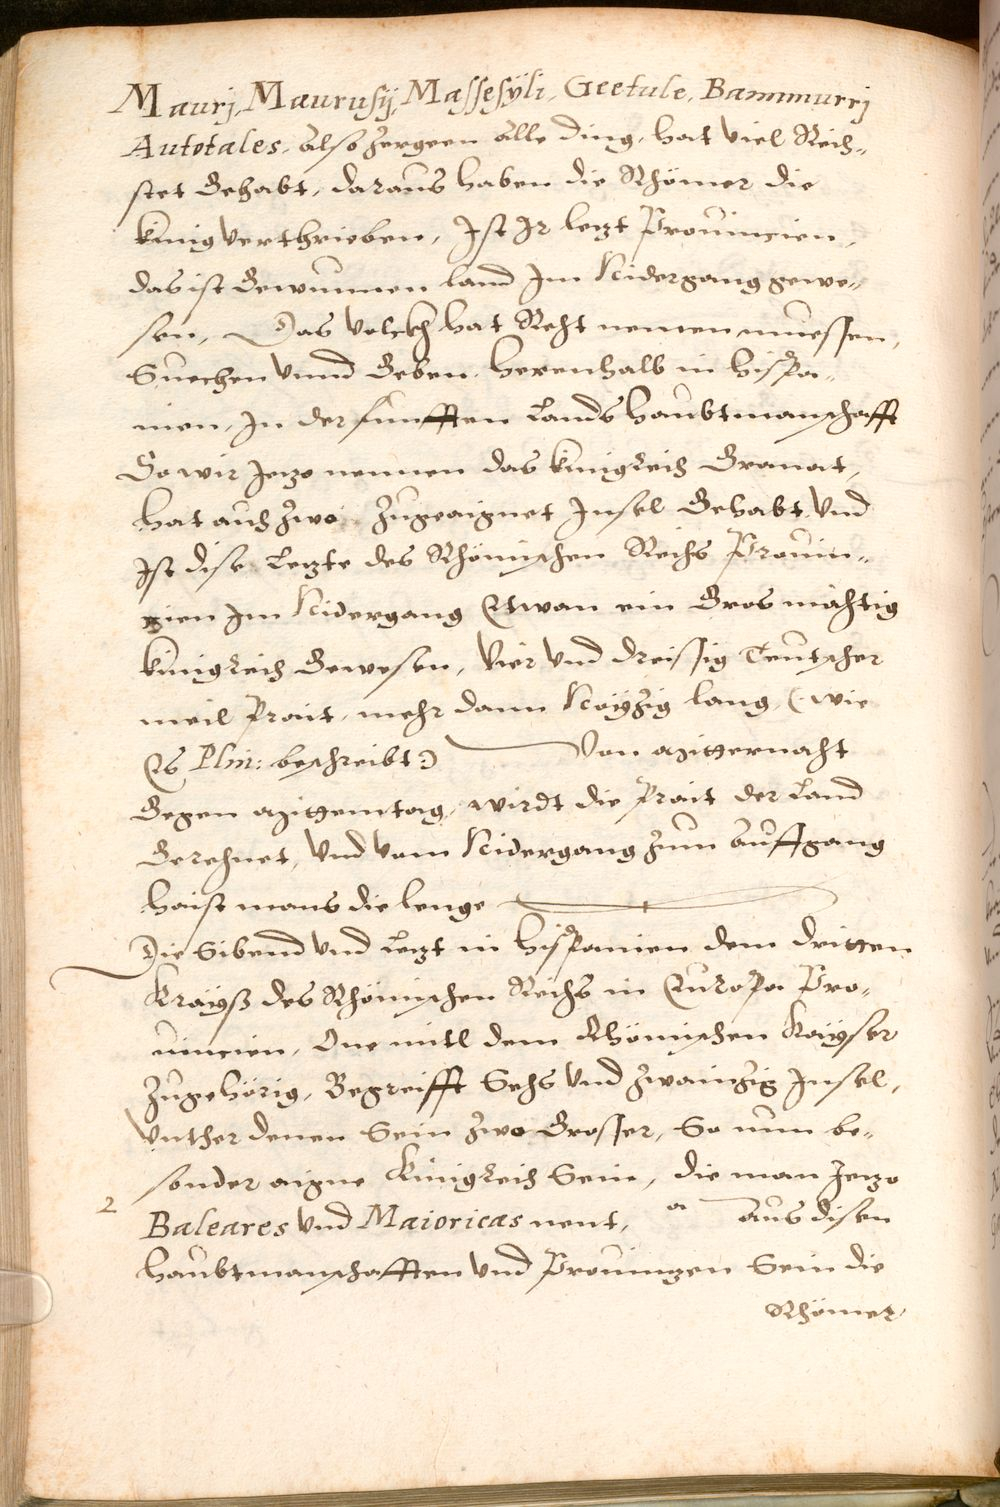 Maurj, Maurusÿ, Massesÿli, Geetule, Bammurrj
Autotales, Also zergeen alle ding, hat viel Reich=
stet Gehabt, daraus haben die Rhömer die
künig verthrieben, Ist Ir letzt Prouincien,
das ist Gewunnen land Im Nidergang gewe=
sen, Das volckh hat Recht nemen muessen,
Suechen vnnd Geben, herenhalb in hispa=
nien, In der funfften Landshaubtmanschafft
So wir Jetzo nennen das künigreich Granat,
hat auch zwo zugeaignet Insel Gehabt, vnd
Ist dise Letzte des Rhömischen Reichs Prouin=
cien Im Nidergang Etwan ein Gros mächtig
künigreich Gewesen, Vier vnd dreissig Teutscher
meil Prait, mehr dann Neÿzig lang, (: wie
Es Plin: beschreibt:) Von mitternacht
Gegen mittemtag, wirdt die Prait der Land
Gerechnet, vnd vom Nidergang zum Auffgang
haist mans die lenge
Die Sibend vnd Letzt in hispanien dem dritten
Kraÿß des Rhömischen Reichs in Europa Pro=
uincien, One mitl dem Rhömischen Kaÿser
Zugehörig, Begreifft Sechs vnd zwainzig Insel,
Vnther denen Sein zwo Grosser, So nun be=
sonder aigne Künigreich Sein, die man Jetzo
2
Baleares vnd Maioricas nent, a Aus disen
haubtmanschafften vnd Prouinzen Sein die
Rhömer